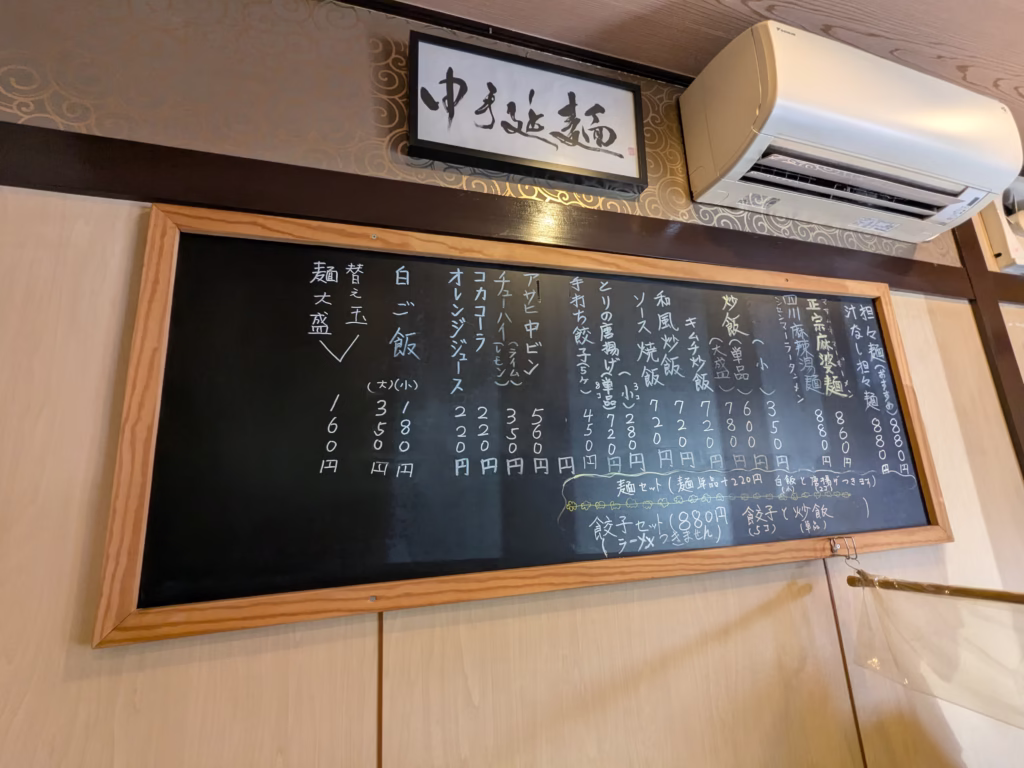 手延麺
担々麺(おすすめ) 880円
汁なし担々麺 880円
正宗麻婆麺 860円
四川麻辣湯麺 880円
(小) 350円
炒飯(単品) 600円
(大盛) 780円
キムチ炒飯 720円
和風炒飯 720円
ソース焼飯 720円
(小) 280円
とりの唐揚げ単品 720円
手打ち餃子(5ケ) 450円
円
アサヒ中ビン 560円
チューハイ(ライム)(レモン) 350円
コカコーラ 220円
オレンジジュース 220円
白ご飯 (小) 180円
(大) 350円
替え玉
麺大盛 160円
麺セット(麺単品+220円 白飯と唐揚がつきます)
餃子セット(880円 餃子と炒飯)
(5コ) (単品)
(ラーメンつきません)